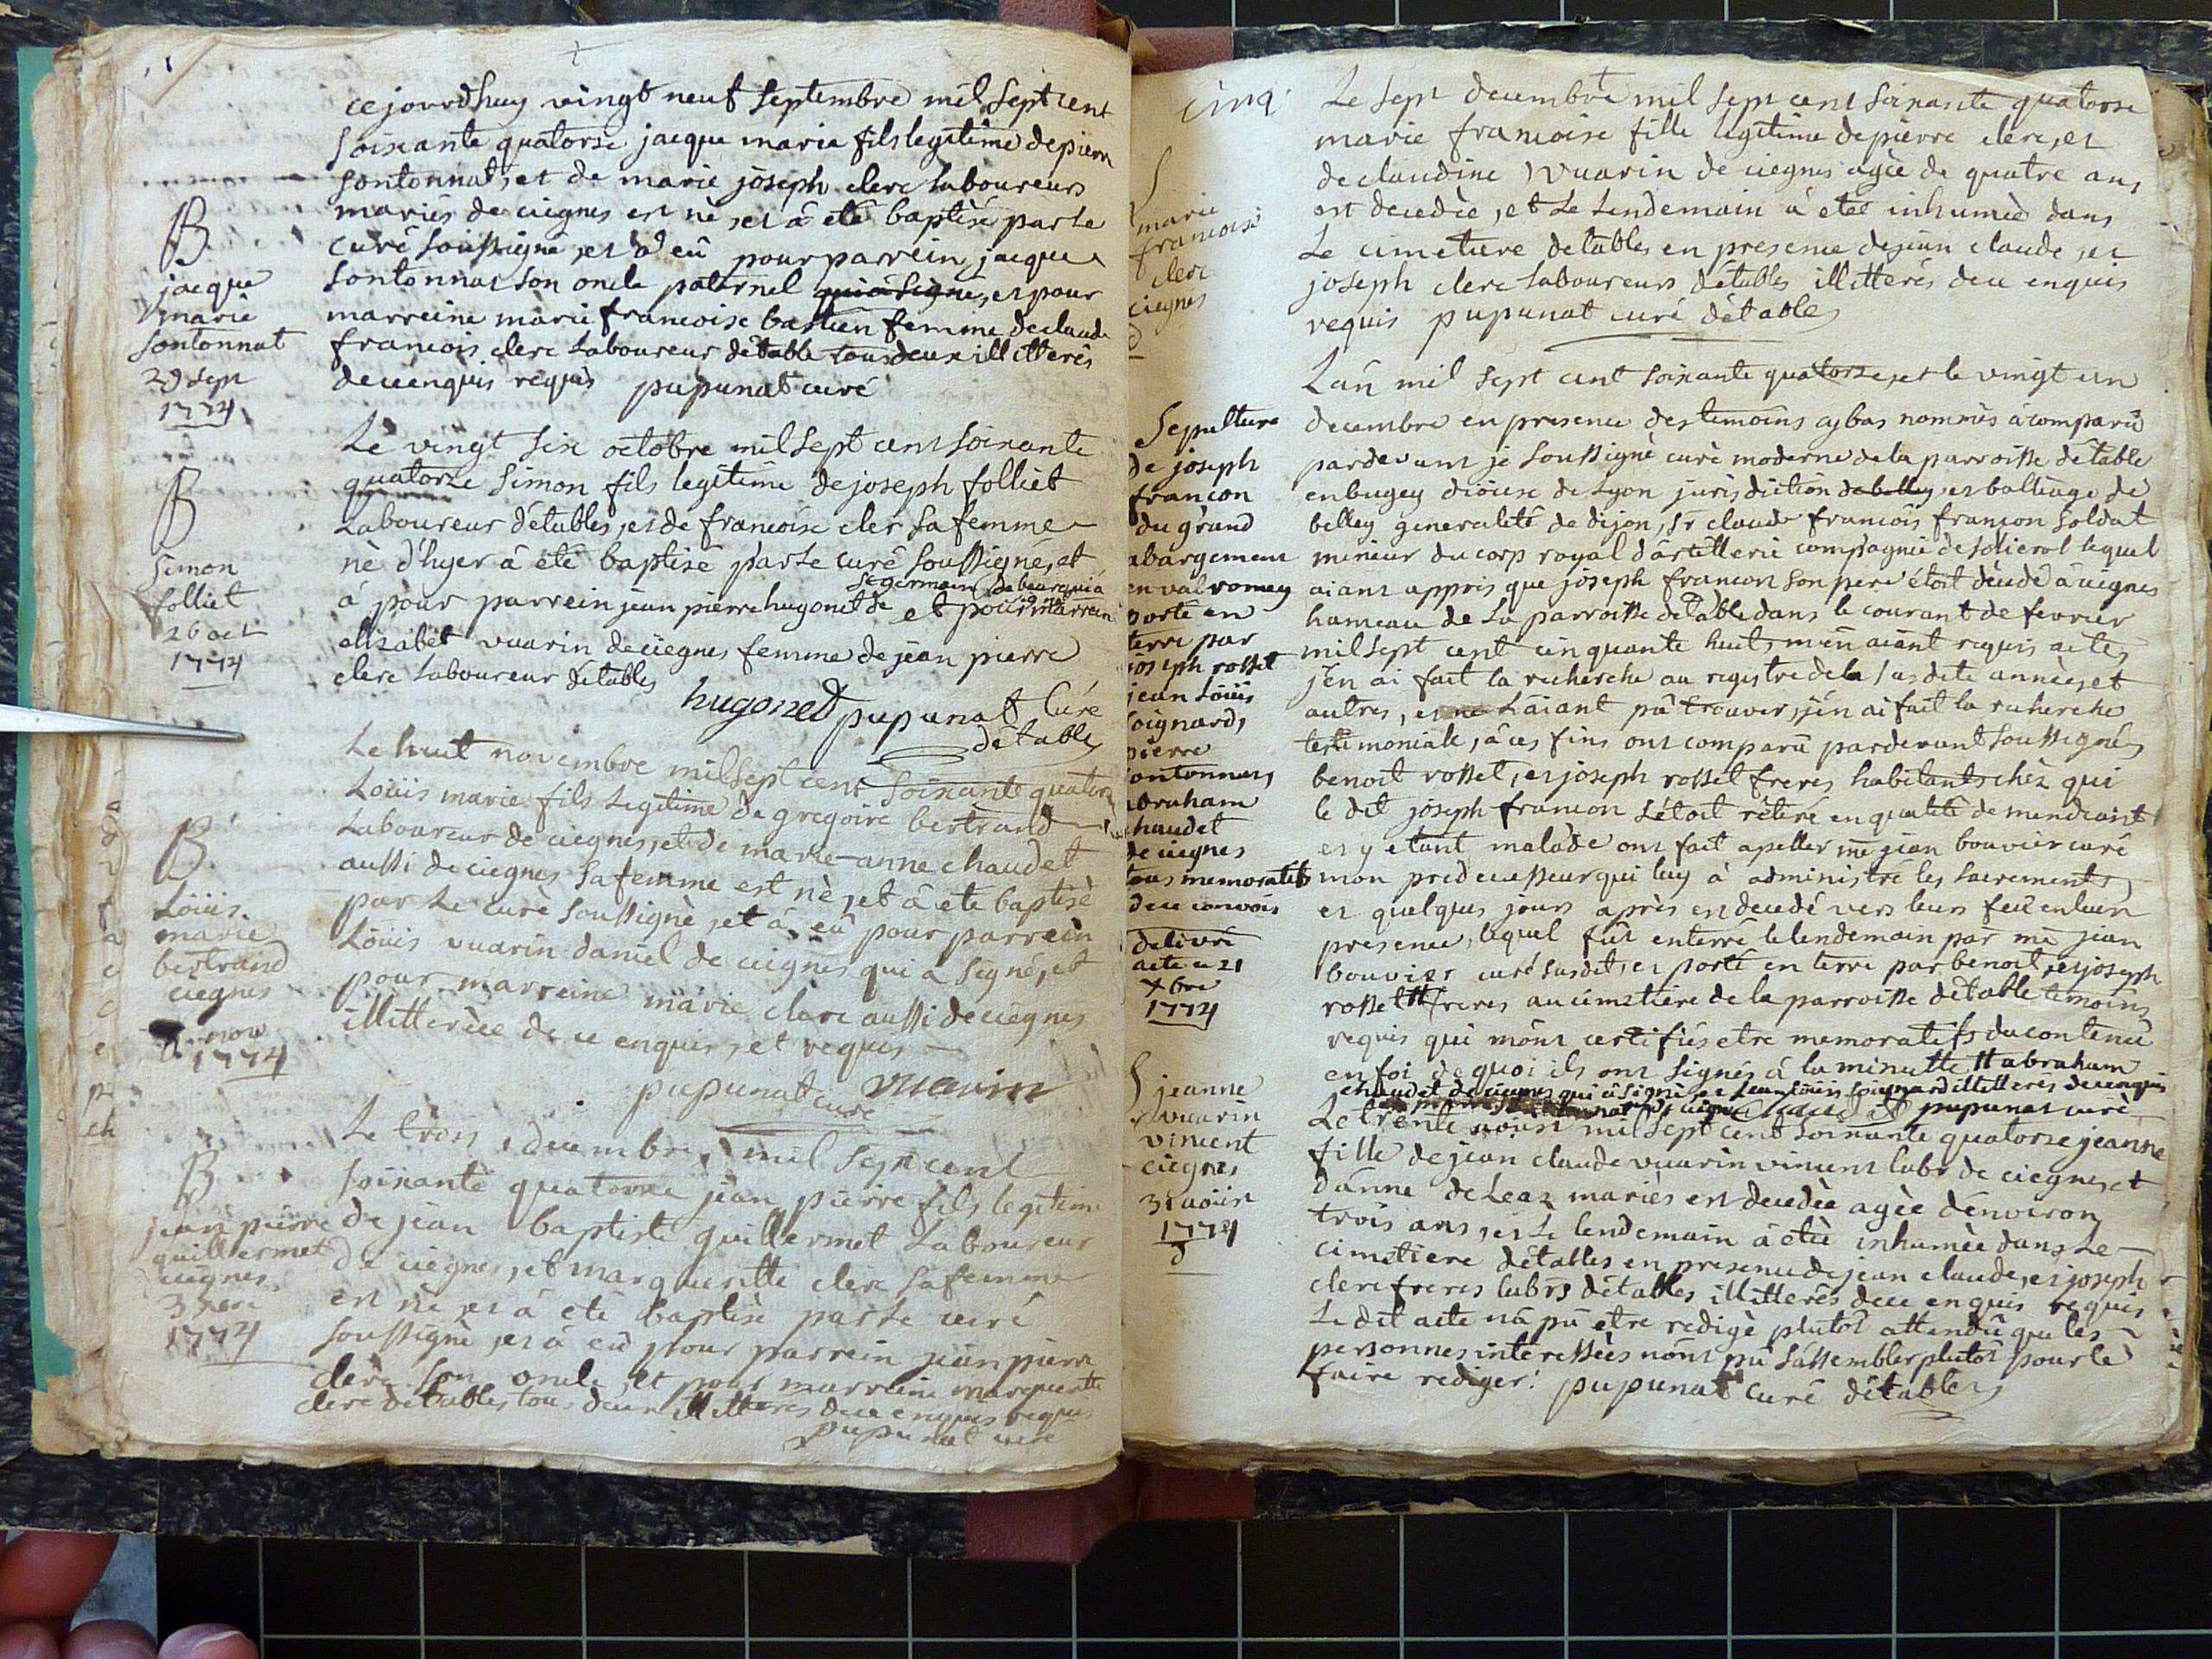 ce jourdhuy vingt neuf septembre mil sept cent
soixante quatorse jacque marie fils legitime de pierre
sontonnat, et de marie joseph clerc laboureurs
mariés de ciegnes est nè, et â etê baptisé par le
curé soussigné, et a eû pour parrein jacque
sontonnat son oncle paternel qui â signé, et pour
marreine marie francoise bastien femme de claude
francois clerc laboureur détable tous deux illitterés
de ce enquis requis pupunat curé
B
jacque
marie
sontonnat
29 sept
1774
Le vingt six octobre mil sept cent soixante
quatorse simon fils legitime de joseph folliet
Laboureur détables, et de francoise cler sa femme
nè d'hyer â été baptisé par le curé soussigné, et
â pour parrein jean pierre hugonet de st germain et pour marrein
elizabet vuarin de ciegnes femme de jean pierre
clerc laboureur détables
hugoned pupunat Curé
détables
B
simon
folliet
26 oct
1774
Le huit novembre mil sept cent soixante quators
Loüis marie fils legitime de gregoire bertrand
Laboureur de ciegnes, et de marie-anne chaudet
aussi de ciegnes sa femme est nè, et â ete baptisè
par le curè soussignè, et â eû pour parrein
Loüis vuarin daniel de ciegnes qui a signé, et
pour marreine marie clerc aussi de ciegnes
illitterèe de ce enquis, et requis
pupunat curé vuarin
B
Loüis
marie
bertrand
ciegnes
nov
1774
Le trois decembre mil sept cent
soixante quatorse jean pierre fils legitime
de jean baptiste guillermet Laboureur
de ciegnes, et margueritte clerc sa femme
est nè, et â eté baptisè par le curé
soussignè, et â eû pour parrein jean pierre
clerc son oncle, et pour marreine margueritte
clerc détables tous deux illitteres de ce enquis requis
pupunat curé
B
jean pierre
guillermet
ciegnes
3 xbre
1774
cinq
Le sept decembre mil sept cent soixante quatorse
marie francoise fille legitime de pierre clerc, et
de claudine vuarin de ciegnes agèe de quatre ans
est decedèe, et le lendemain â etè inhumèe dans
Le cimeture detables en presence de jean claude, et
joseph clerc laboureurs détables illitterés de ce enquis
requis pupunat curé détables
S
marie
francoise
clerc
ciegnes
Lan mil sept cent soixante quatorse, et le vingt un
decembre en presence des temoins cy bas nommés â comparû
pardevant je soussignè curè moderne de la parroisse détable
en bugey diocese de Lyon jurisdiction de belley et balliage de
belley generalité de dijon, sr claude francois françon soldat
mineur du corp royal d'artillerie compagnie de lequel
aiant appris que joseph francon son pere étoit dècedé â ciegnes
hameau de la parroisse détable dans le courant de fevrier
mil sept cent cinquante huit, m'en aiant requis acte,
j'en ai fait la recherche au registre de la susdite annèe, et
autres, et ne Laiant pû trouver, j'en ai fait la recherche
testimoniale, â ces fins ont comparû pardevant soussignés
benoit rosset, et joseph rosset freres habitants chèz qui
le dit joseph francon s'étoit rétiré en qualité de mendiant
et y etant malade ont fait apeller me jean bouvier curé
mon predecesseur qui luy â administré les sacrements,
et quelques jours après est decedé vers leurs feu en leur
presence, lequel fût enterré le lendemain par me jean
bouvier curé susdit, et porté en terre par benoit, et joseph
rosset # freres au cimetiere de la parroisse détable temoins
requis qui m'ont certifiés etre memoratifs du contenû
en foi de quoi ils ont signés â la minutte # abraham
chaudet de ciegnes qui â signé, et jean loüis soignard illitteres de ce enquis
pupunat curé
Sepulture
de joseph
francon
du grand
abargement
en valromey
porté en
terre par
joseph rosset
jean Loüis
soignard,
pierre
sontonnat,
abraham
chaudet
de ciegnes
tous memoratifs
de ce convois
delivré
acte ce 21
xbre
1774
Le trente aoust mil sept cent soixante quatorse jeanne
fille de jean claude vuarin vincent labr de ciegnes, et
d'anne de Leaz mariès est decedèe agèe d'environ
trois ans, et le lendemain â étèe inhumèe dans Le
cimetiere détables en presence de jean claude, et joseph
clerc freres labrs détables illitterés de ce enquis requis
Le dit acte nâ pû etre redigè plutot attendû que les
personnes interessèes n'ont pû s'assembler plutôt pour le
faire rediger. pupunat curé détables
S
jeanne
vuarin
vincent
ciegnes
31 aoüst
1774